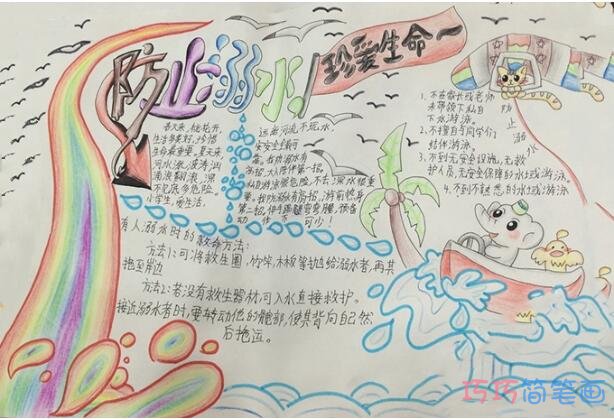 防止溺水!
珍爱生命
春天来，桃花开，
生活多美好，珍惜
生命最重要。夏天来，
河水涨，波涛汹
涌浪翻滚，深
不见底多危险。
小学生，爱生活，
远离河流不玩水，
安安全全最可
要，预备
动
不
可少!
有人溺水时的救命方法:
方法1:可将救生圈、竹竿、木板等抛给溺水者，再其
拖至岸边
方法2:若没有救生器材，可入水直接救护。
接近溺水者时，要转动他的髋部，使其背向自己然
后拖运。
1、不在家长或老师
未带领下私自
下水游泳。
2、不擅自与同学们
结伴游泳。
3、不到无安全设施、无救
护人员、无安全保障的水域游泳。
4、不到不熟悉的水域游泳。
防
止
溺
水
巧巧简笔画